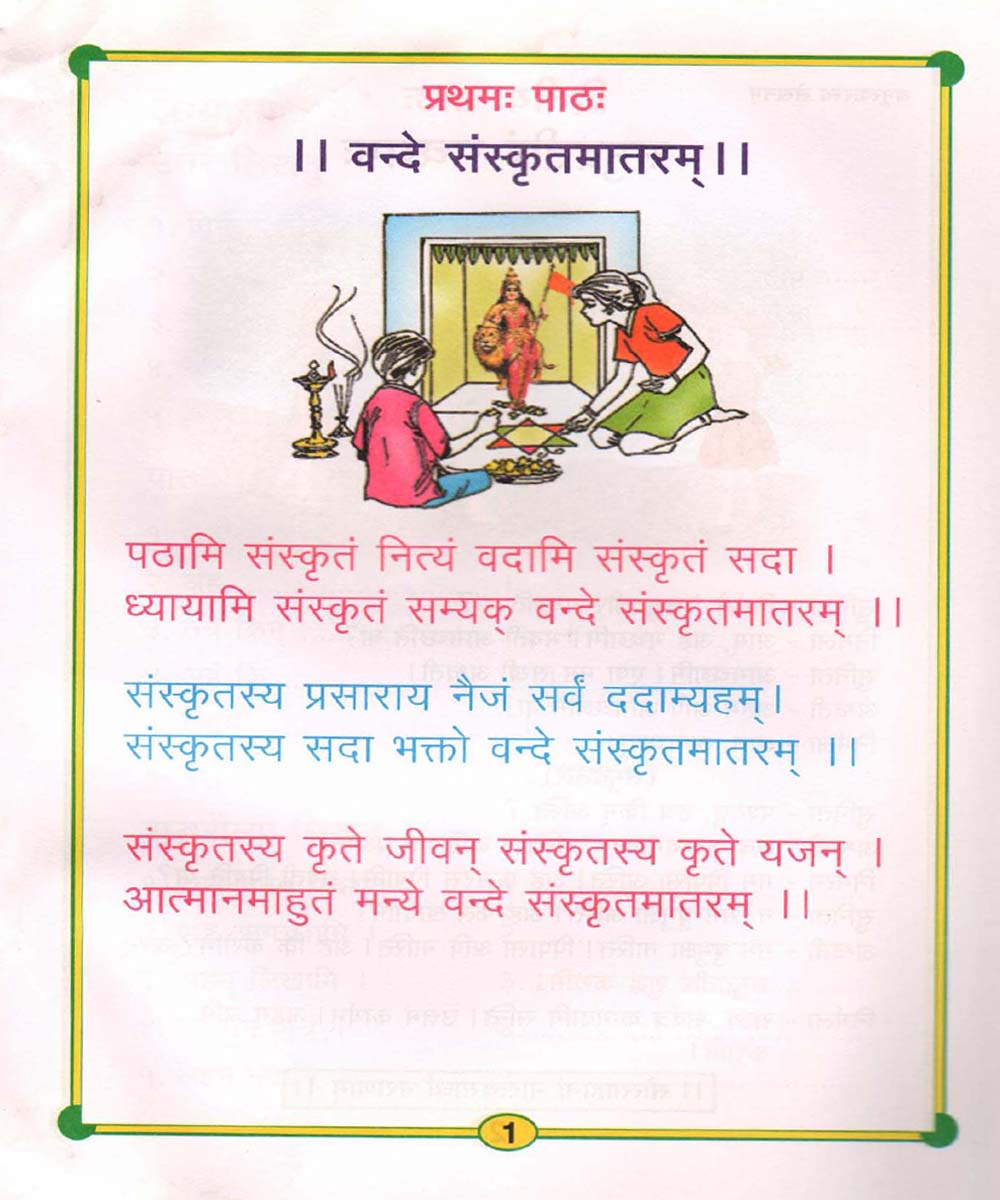 प्रथमः पाठः
।। वन्दे संस्कृतमातरम्।।
पठामि संस्कृतं नित्यं वदामि संस्कृतं सदा ।
ध्यायामि संस्कृतं सम्यक् वन्दे संस्कृतमातरम् ।।
संस्कृतस्य प्रसाराय नैजं सर्वं ददाम्यहम्।
संस्कृतस्य सदा भक्तो वन्दे संस्कृतमातरम् ।।
संस्कृतस्य कृते जीवन् संस्कृतस्य कृते यजन् ।
आत्मानमाहुतं मन्ये वन्दे संस्कृतमातरम् ।।
1